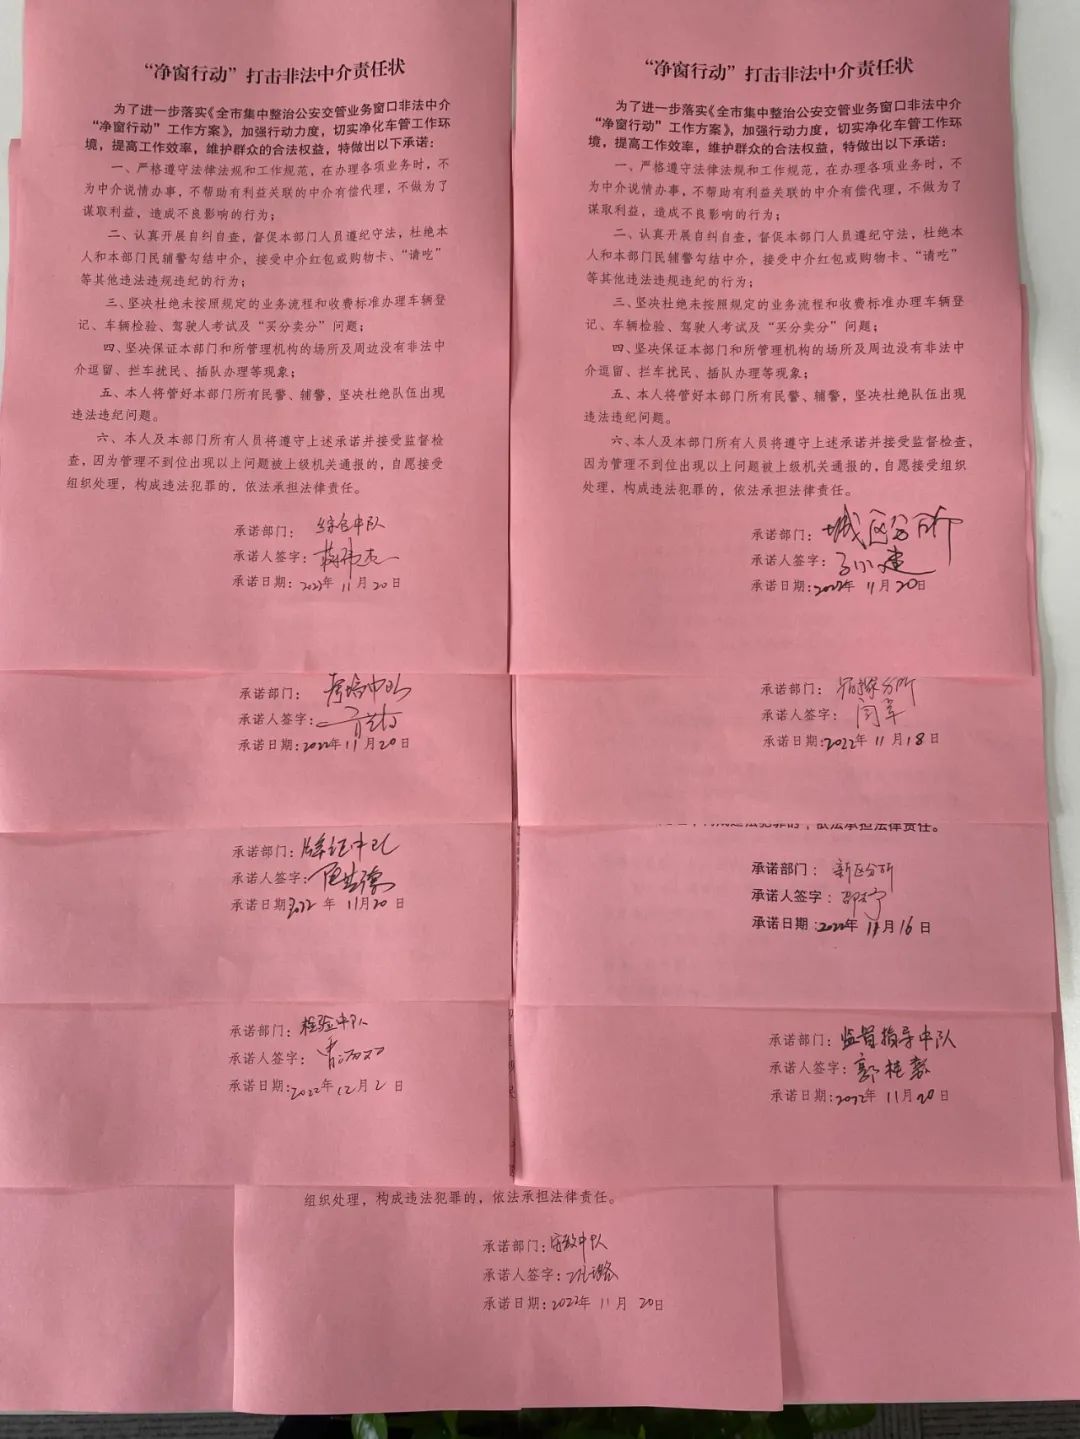 “净窗行动”打击非法中介责任状
为了进一步落实《全市集中整治公安交管业务窗口非法中介
“净窗行动”工作方案》，加强行动力度，切实净化车管工作环
境，提高工作效率，维护群众的合法权益，特做出以下承诺：
一、严格遵守法律法规和工作规范，在办理各项业务时，不
为中介说情办事，不帮助有利益关联的中介有偿代理，不做为了
谋取利益，造成不良影响的行为；
二、认真开展自纠自查，督促本部门人员遵纪守法，杜绝本
人和本部门民辅警勾结中介，接受中介红包或购物卡、“请吃”
等其他违法违规违纪的行为；
三、坚决杜绝未按照规定的业务流程和收费标准办理车辆登
记、车辆检验、驾驶人考试及“买分卖分”问题；
四、坚决保证本部门和所管理机构的场所及周边没有非法中
介逗留、拦车扰民、插队办理等现象；
五、本人将管好本部门所有民警、辅警，坚决杜绝队伍出现
违法违纪问题。
六、本人及本部门所有人员将遵守上述承诺并接受监督检
查，因为管理不到位出现以上问题被上级机关通报的，自愿接受
组织处理，构成违法犯罪的，依法承担法律责任。
承诺部门：综合中队
承诺人签字：
承诺日期：2022年11月20日
承诺部门：考培中队
承诺人签字：
承诺日期：2022年11月20日
承诺部门：牌证中队
承诺人签字：
承诺日期：2022年11月20日
承诺部门：检验中队
承诺人签字：
承诺日期：2022年12月2日
“净窗行动”打击非法中介责任状
为了进一步落实《全市集中整治公安交管业务窗口非法中介
“净窗行动”工作方案》，加强行动力度，切实净化车管工作环
境，提高工作效率，维护群众的合法权益，特做出以下承诺：
一、严格遵守法律法规和工作规范，在办理各项业务时，不
为中介说情办事，不帮助有利益关联的中介有偿代理，不做为了
谋取利益，造成不良影响的行为；
二、认真开展自纠自查，督促本部门人员遵纪守法，杜绝本
人和本部门民辅警勾结中介，接受中介红包或购物卡、“请吃”
等其他违法违规违纪的行为；
三、坚决杜绝未按照规定的业务流程和收费标准办理车辆登
记、车辆检验、驾驶人考试及“买分卖分”问题；
四、坚决保证本部门和所管理机构的场所及周边没有非法中
介逗留、拦车扰民、插队办理等现象；
五、本人将管好本部门所有民警、辅警，坚决杜绝队伍出现
违法违纪问题。
六、本人及本部门所有人员将遵守上述承诺并接受监督检查，
因为管理不到位出现以上问题被上级机关通报的，自愿接受组织
处理，构成违法犯罪的，依法承担法律责任。
承诺部门：城区分所
承诺人签字：
承诺日期：2022年11月20日
承诺部门：分所
承诺人签字：闫军
承诺日期：2022年11月18日
依法承担法律责任。
承诺部门：新区分所
承诺人签字：
承诺日期：2022年11月16日
承诺部门：监督指导中队
承诺人签字：郭桂
承诺日期：2022年11月20日
组织处理，构成违法犯罪的，依法承担法律责任。
承诺部门：中队
承诺人签字：
承诺日期：2022年11月20日